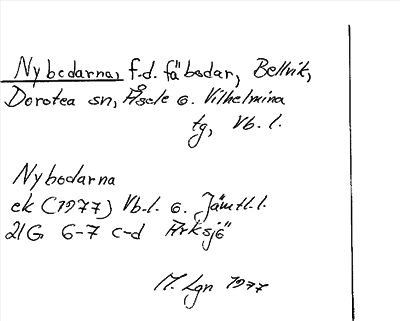 Nybodarna, f.d. fäbodar, Bellvik,
Dorotea sn, Åsele o. Vilhelmina
tg, Vb. l.
Nybodarna
ek (1977) Vb.l. o. Jämtl.l.
21G 6-7 c-d Arksjö
M. Lgn 1977